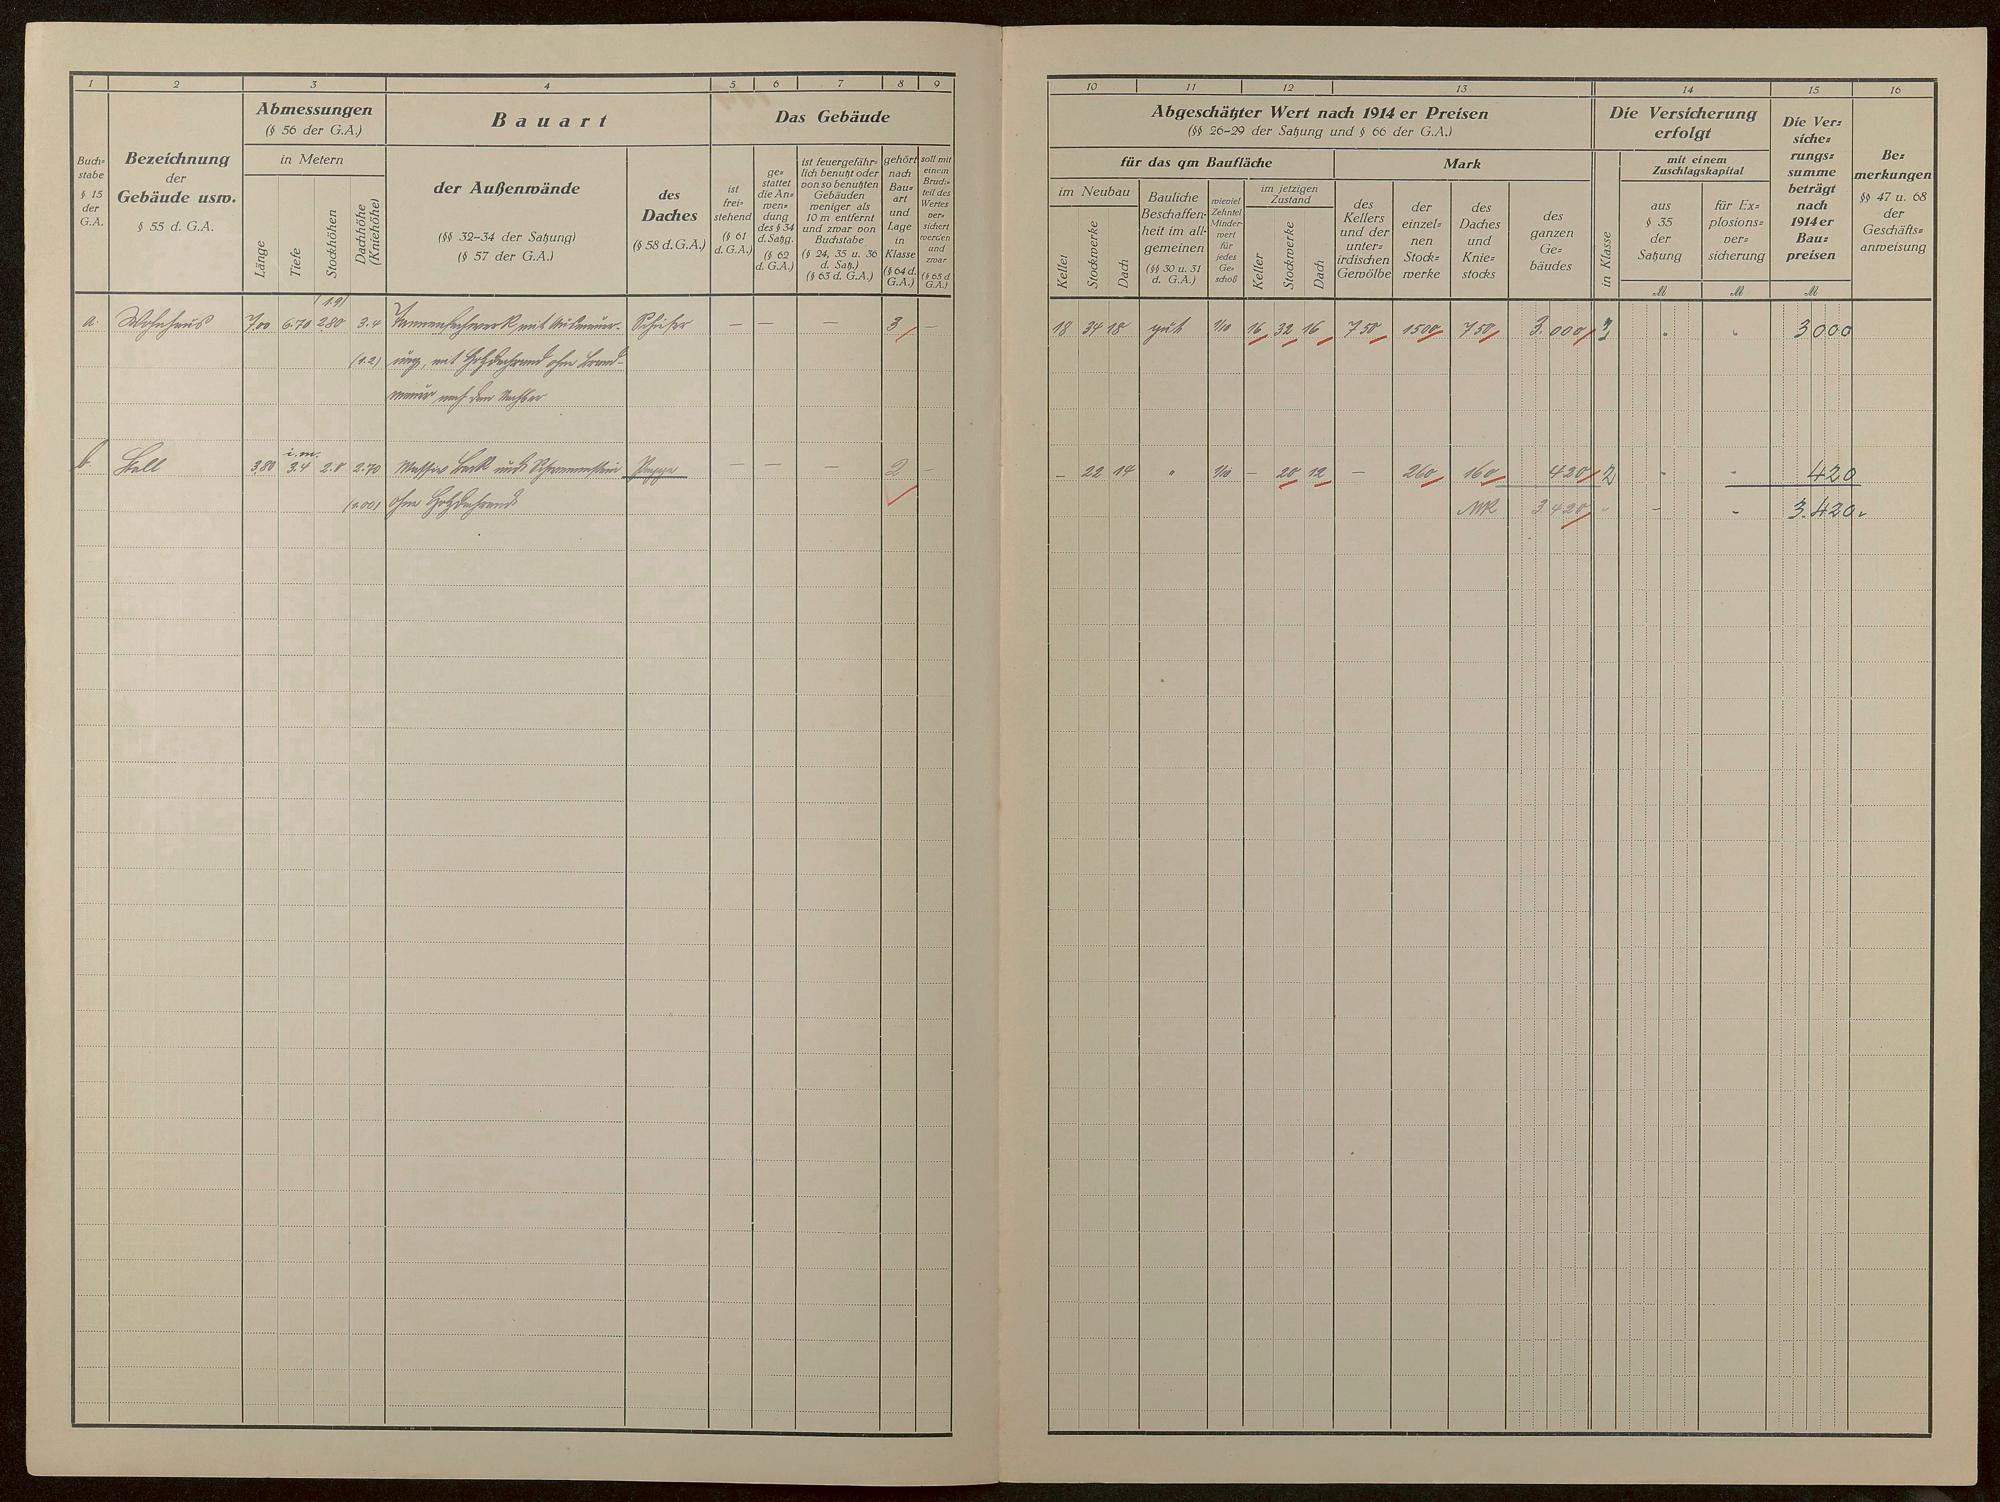 1 2 3 4 5 6 7 8 9
Buch=
stabe
§ 15
der
G.A.
Bezeichnung
der
Gebäude usw.
§ 55 d. G.A.
Abmessungen
(§ 56 der G.A.)
in Metern
Länge
Tiefe
Stockhöhen
Dachhöhe
(Kniehöhe)
Bauart
der Außenwände
(§§ 32-34 der Satzung)
(§ 57 der G.A.)
des
Daches
(§ 58 d.G.A.)
Das Gebäude
ist
frei=
stehend
(§ 61
d. G.A.)
ge=
stattet
die An=
wen=
dung
des § 34
d. Satzg.
(§ 62
d. G.A.)
ist feuergefähr=
lich benutzt oder
von so benutzten
Gebäuden
weniger als
10 m entfernt
und zwar von
Buchstabe
(§ 24, 35 u. 36
d. Satz.)
(§ 63 d. G.A.)
gehört
nach
Bau=
art
und
Lage
in
Klasse
(§ 64 d.
G.A.)
soll mit
einem
Bruch=
teil des
Wertes
ver=
sichert
werden
und
zwar
(§ 65 d
G.A.)
(1.9)
a. Wohnhaus 7,00 6.70 2.80 3.4 Tannenfachwerk mit Ausmauer- Schiefer — — — 3 —
(1.2) ung, mit Holzdachrand ohne Brand-
mauer nach dem Nachbar
i.m.
b. Stall 3.80 3.4 2.8 2.70 Massiv Back und Schwemmstein Pappe — — — 2 —
ohne Holzdachrand
10 11 12 13 14 15 16
Abgeschätzter Wert nach 1914 er Preisen
(§§ 26-29 der Satzung und § 66 der G.A.)
für das qm Baufläche
im Neubau
Keller
Stockwerke
Dach
Bauliche
Beschaffen=
heit im all=
gemeinen
(§§ 30 u. 31
d. G.A.)
wieviel
Zehntel
Minder=
wert
für
jedes
Ge=
schoß
im jetzigen
Zustand
Keller
Stockwerke
Dach
Mark
des
Kellers
und der
unter=
irdischen
Gewölbe
der
einzel=
nen
Stock=
werke
des
Daches
und
Knie=
stocks
des
ganzen
Ge=
bäudes
Die Versicherung
erfolgt
in Klasse
mit einem
Zuschlagskapital
aus
§ 35
der
Satzung
für Ex=
plosions=
ver=
sicherung
Die Ver=
siche=
rungs=
summe
beträgt
nach
1914 er
Bau=
preisen
Be=
merkungen
§§ 47 u. 68
der
Geschäfts=
anweisung
M M M
18 34 18 gut 1/10 16 32 16 750 1500 750 3.000 3 - - 3000
— 22 14 " 1/10 — 20 12 — 260 160 420 2 - - 420
MK 3.420 - - - 3.420.-